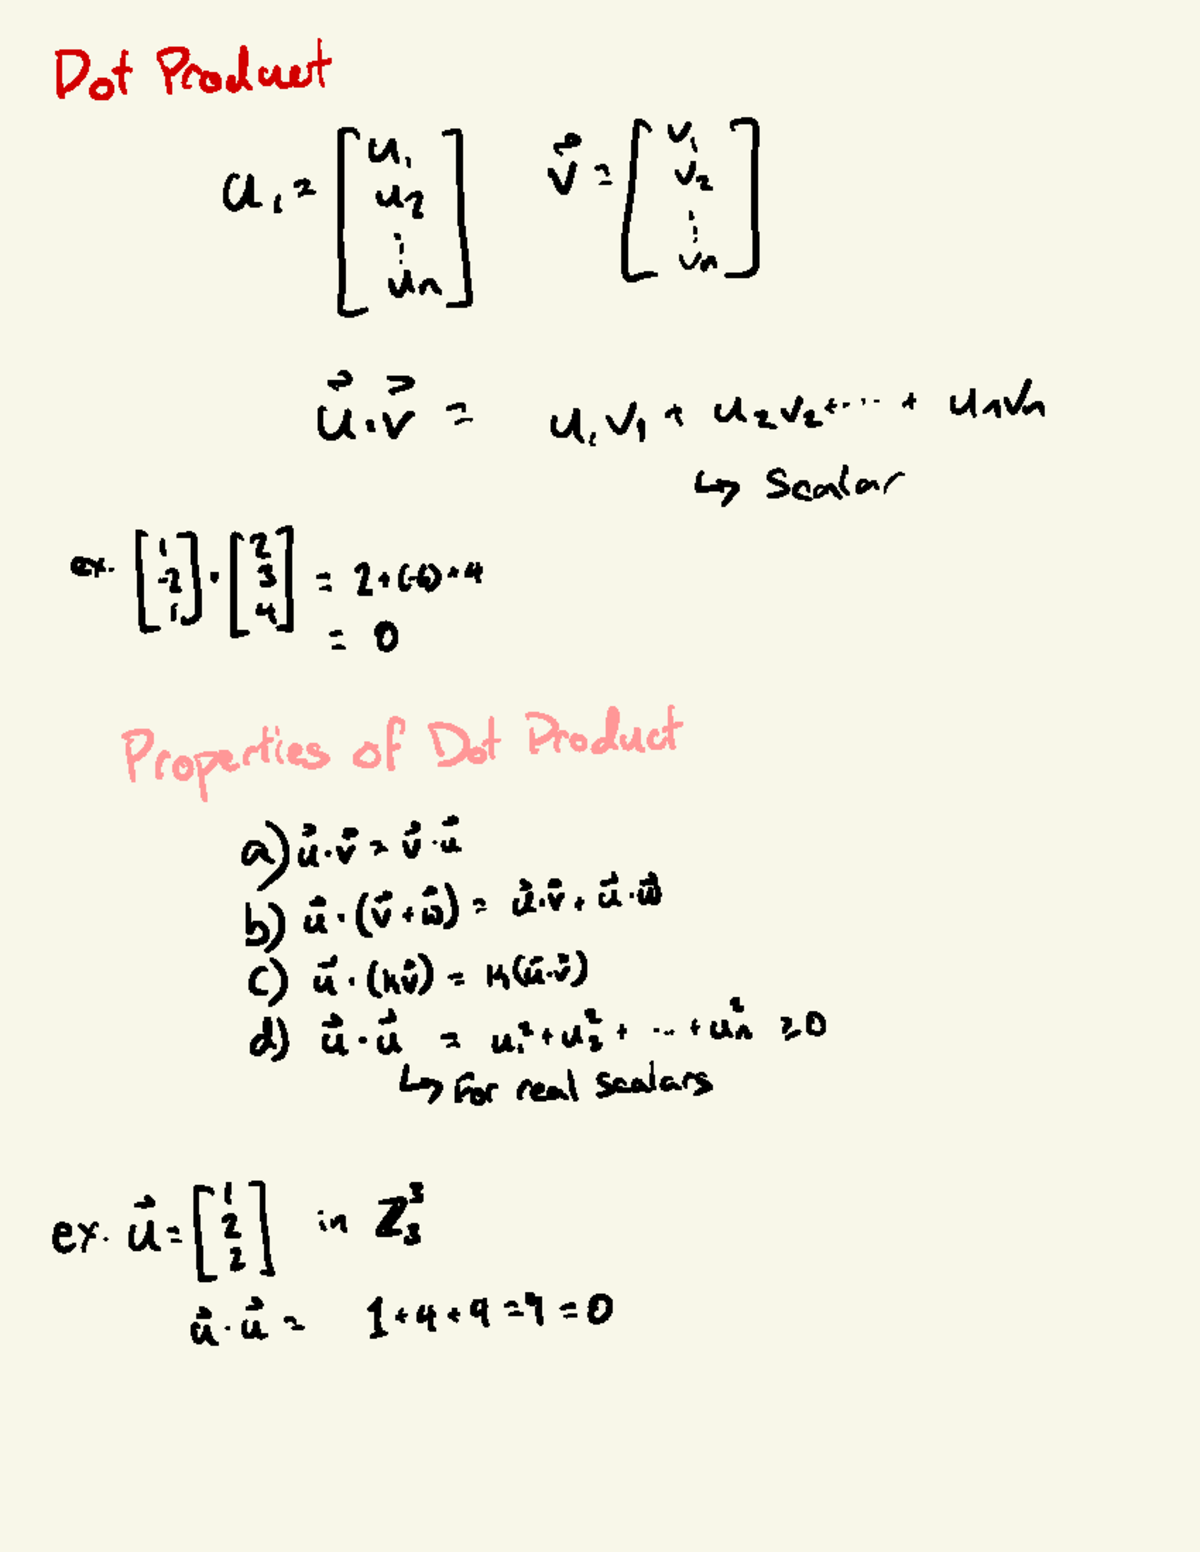 Dot Product
u₁ = [u₁ u₂ ⋮ uₙ] v⃗ = [v₁ v₂ ⋮ vₙ]
u⃗·v⃗ = u₁v₁ + u₂v₂ + ... + uₙvₙ
↳ Scalar
ex. [1 -2 1] · [2 3 4] = 2 + (-6) + 4
= 0
Properties of Dot Product
a) u⃗·v⃗ = v⃗·u⃗
b) u⃗·(v⃗+w⃗) = u⃗·v⃗ + u⃗·w⃗
c) u⃗·(kv⃗) = k(u⃗·v⃗)
d) u⃗·u⃗ = u₁² + u₂² + ... + uₙ² ≥ 0
↳ For real scalars
ex. u⃗ = [1 2 2] in ℤ₃³
u⃗·u⃗ = 1 + 4 + 4 = 9 = 0